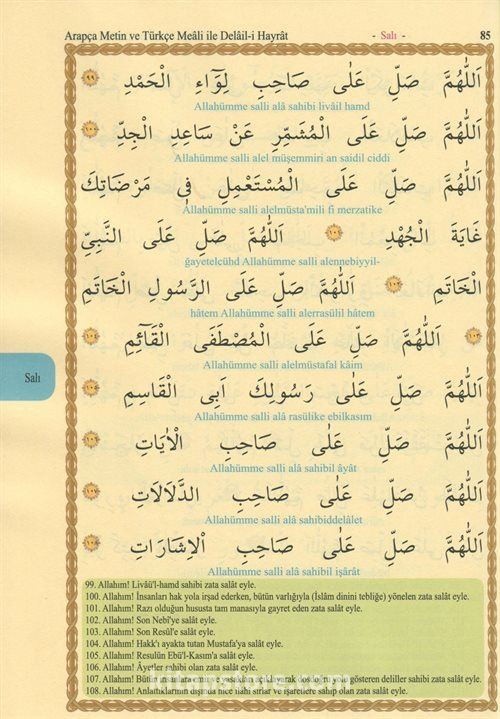 Arapça Metin ve Türkçe Meâli ile Delâil-i Hayrât - Salı - 85
اَللّٰهُمَّ صَلِّ عَلٰى صَاحِبِ لِوَٓاءِ الْحَمْدِ ٩٩
Allahümme salli alâ sahibi livâil hamd
اَللّٰهُمَّ صَلِّ عَلَى الْمُشَمِّرِ عَنْ سَاعِدِ الْجِدِّ ١٠٠
Allahümme salli alel müşemmiri an saidil ciddi
اَللّٰهُمَّ صَلِّ عَلَى الْمُسْتَعْمِلِ فِى مَرْضَاتِكَ
Allahümme salli alelmüsta'mili fi merzatike
غَايَةَ الْجُهْدِ اَللّٰهُمَّ صَلِّ عَلَى النَّبِيِّ
ğayetelcühd Allahümme salli alennebiyyil-
الْخَاتَمِ اَللّٰهُمَّ صَلِّ عَلَى الرَّسُولِ الْخَاتَمِ
hâtem Allahümme salli alerrasülil hâtem
اَللّٰهُمَّ صَلِّ عَلَى الْمُصْطَفَى الْقَٓائِمِ
Allahümme salli alelmüstafal kâim
اَللّٰهُمَّ صَلِّ عَلٰى رَسُولِكَ اَبِى الْقَاسِمِ
Allahümme salli alâ rasülike ebilkasım
اَللّٰهُمَّ صَلِّ عَلٰى صَاحِبِ الْاٰيَاتِ
Allahümme salli alâ sahibil âyât
اَللّٰهُمَّ صَلِّ عَلٰى صَاحِبِ الدَّلَالَاتِ
Allahümme salli alâ sahibiddelâlet
اَللّٰهُمَّ صَلِّ عَلٰى صَاحِبِ الْاِشَارَاتِ
Allahümme salli alâ sahibil işârât
Salı
99. Allahım! Livâü'l-hamd sahibi zata salât eyle.
100. Allahım! İnsanları hak yola irşad ederken, bütün varlığıyla (İslâm dinini tebliğe) yönelen zata salât eyle.
101. Allahım! Razı olduğun hususta tam manasıyla gayret eden zata salât eyle.
102. Allahım! Son Nebî'ye salât eyle.
103. Allahım! Son Resûl'e salât eyle.
104. Allahım! Hakk'ı ayakta tutan Mustafa'ya salât eyle.
105. Allahım! Resulün Ebü'l-Kasım'a salât eyle.
106. Allahım! Âyetler sahibi olan zata salât eyle.
107. Allahım! Bütün insanlara emir ve yasakları açıklayarak doğru yolu gösteren deliller sahibi zata salât eyle.
108. Allahım! Anlattıklarının dışında nice ilâhî sırlar ve işaretlere sahip olan zata salât eyle.